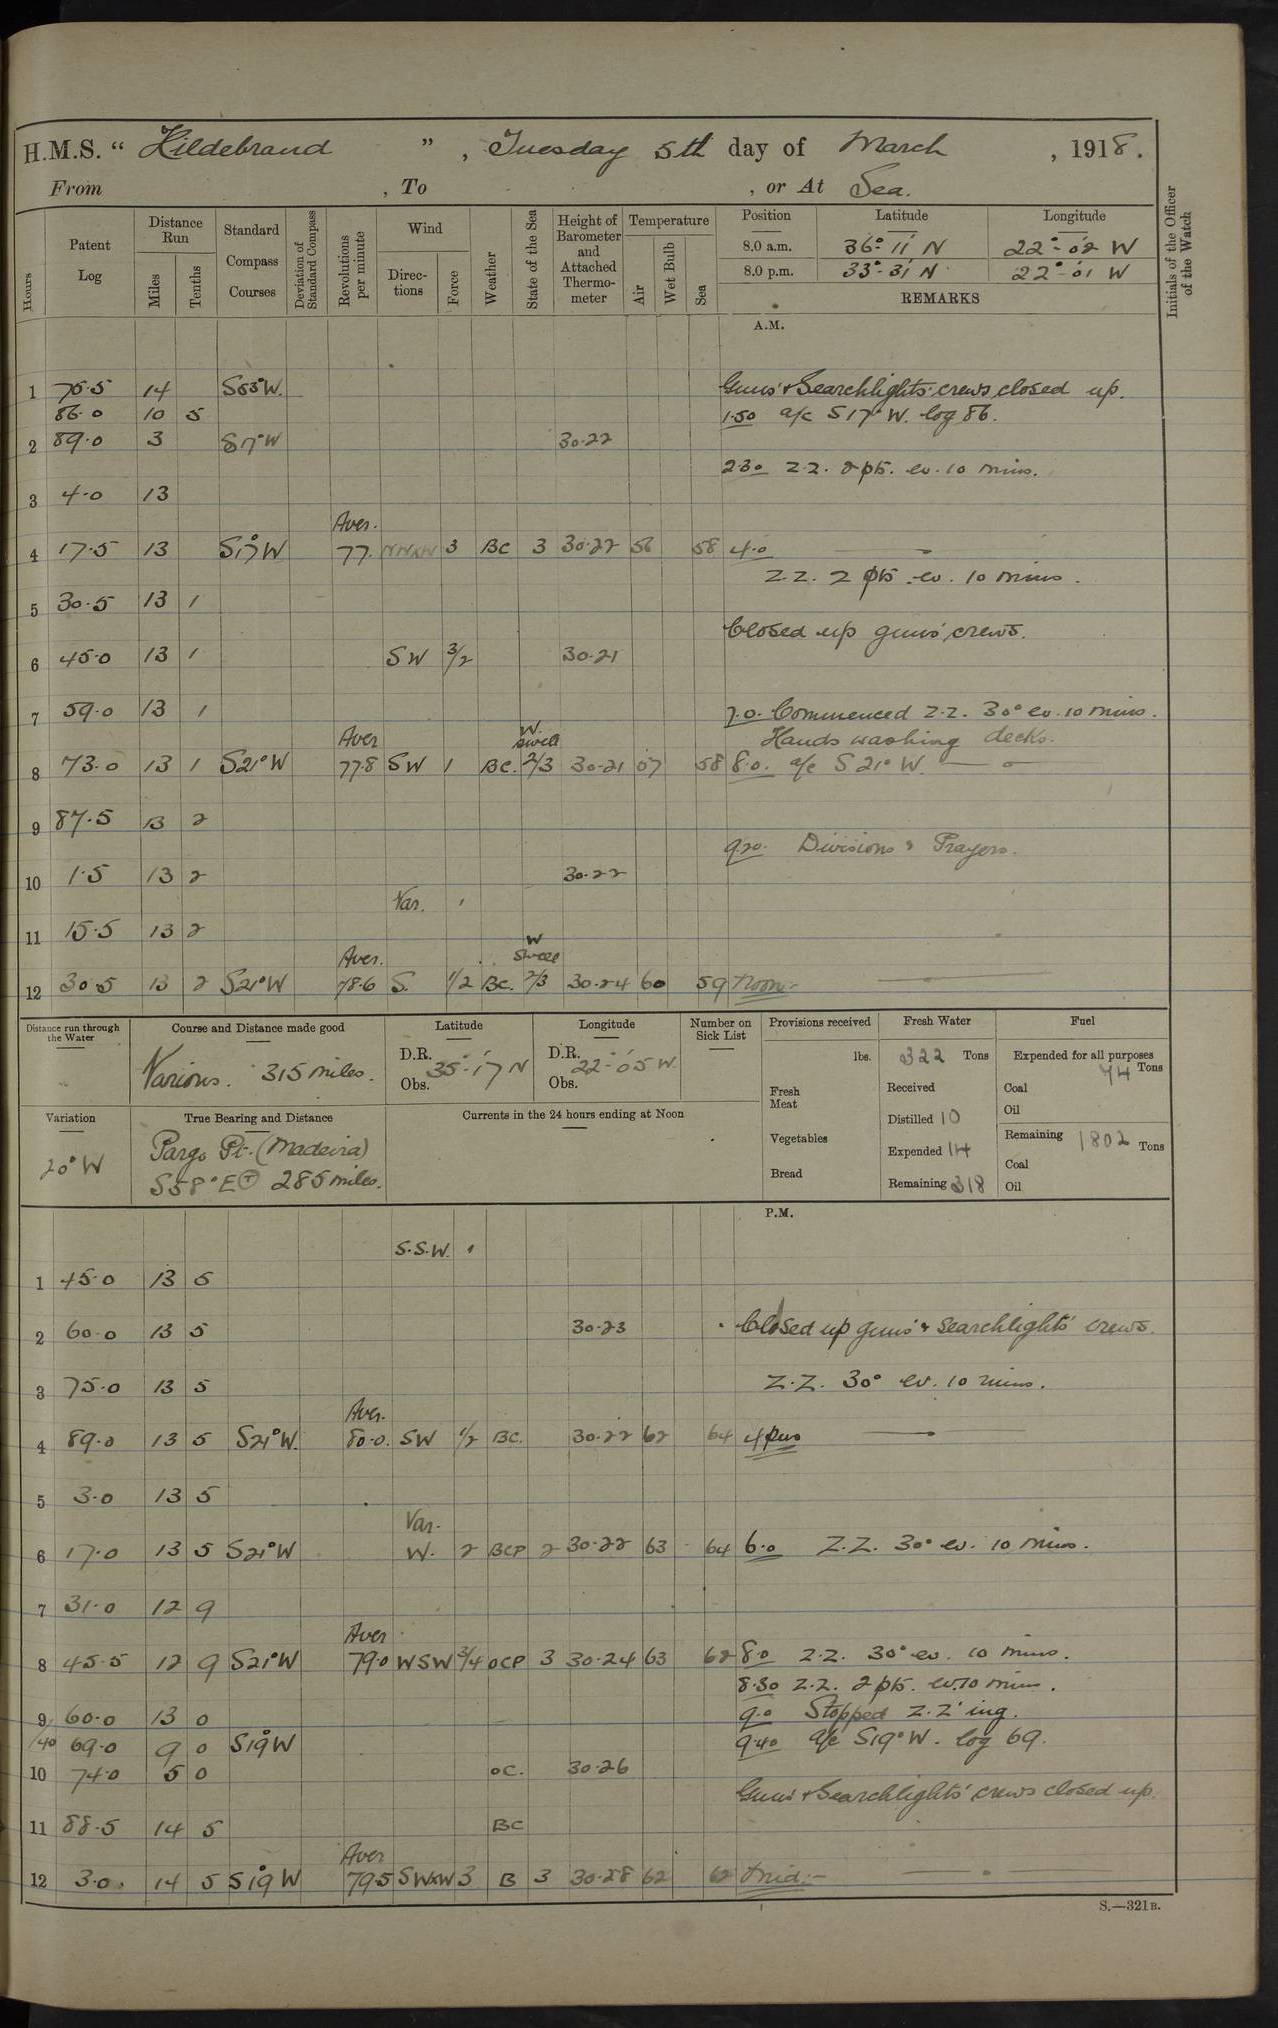 H.M.S. “ Hildebrand ” , Tuesday 5th day of March , 1918.
From , To , or At Sea.
Hours
Patent Log
Distance Run
Miles
Tenths
Standard Compass Courses
Deviation of Standard Compass
Revolutions per minute
Wind
Directions
Force
Weather
State of the Sea
Height of Barometer and Attached Thermometer
Temperature
Air
Wet Bulb
Sea
Position Latitude Longitude
8.0 a.m. 36°-11' N 22°-02 W
8.0 p.m. 33°-31' N 22°-01' W
REMARKS
Initials of the Officer of the Watch
A.M.
1 75.5 14 S53°W. Guns' & Searchlights' crews closed up.
86.0 10 5 1.50 a/c S17°W. log 86.
2 89.0 3 S17°W 30.22
2.30 Z.Z. 2 pts. ev. 10 mins.
3 4.0 13
Aver.
4 17.5 13 S17°W 77. NWxW 3 BC 3 30.22 56 58 4.0
Z.Z. 2 pts. ev. 10 mins.
5 30.5 13 1
Closed up guns' crews.
6 45.0 13 1 SW 3/2 30.21
7 59.0 13 1 7.0. Commenced Z.Z. 30° ev. 10 mins.
Aver W. swell Hands washing decks.
8 73.0 13 1 S21°W 77.8 SW 1 BC. 2/3 30.21 57 58 8.0. a/c S 21° W.
9 87.5 13 2
9.20. Divisions & Prayers.
10 1.5 13 2 30.22
Var. 1
11 15.5 13 2
Aver. W swell
12 30.5 13 2 S21°W 78.6 S. 1/2 BC. 2/3 30.24 60 59 Noon.-
Distance run through the Water
Course and Distance made good
Various. 315 miles.
Latitude
D.R. 35°-17' N
Obs.
Longitude
D.R. 22°-05' W.
Obs.
Number on Sick List
Provisions received
lbs.
Fresh Meat
Vegetables
Bread
Fresh Water
322 Tons
Received
Distilled 10
Expended 14
Remaining 318
Fuel
Expended for all purposes
74 Tons
Coal
Oil
Remaining 1802 Tons
Coal
Oil
Variation
20°W
True Bearing and Distance
Pargo Pt. (Madeira)
S58°E (T) 285 miles.
Currents in the 24 hours ending at Noon
P.M.
S.S.W. 1
1 45.0 13 5
2 60.0 13 5 30.23 Closed up guns' & Searchlights' crews.
3 75.0 13 5 Z.Z. 30° ev. 10 mins.
Aver.
4 89.0 13 5 S21°W. 80.0. SW 1/2 BC. 30.22 62 64 4 pm
5 3.0 13 5
Var.
6 17.0 13 5 S21°W W. 2 BCP 2 30.22 63 64 6.0 Z.Z. 30° ev. 10 mins.
7 31.0 12 9
Aver
8 45.5 12 9 S21°W 79.0 WSW 3/4 OCP 3 30.24 63 62 8.0 Z.Z. 30° ev. 10 mins.
8.30 Z.Z. 2 pts. ev. 10 mins.
9 60.0 13 0 9.0 Stopped Z.Z'ing.
/40 69.0 9 0 S19°W 9.40 a/c S19°W. log 69.
10 74.0 5 0 OC. 30.26
Guns' & Searchlights' crews closed up.
11 88.5 14 5 BC
Aver
12 3.0. 14 5 S19°W 79.5 SWxW 3 B 3 30.28 62 62 Mid:-
S.—321B.